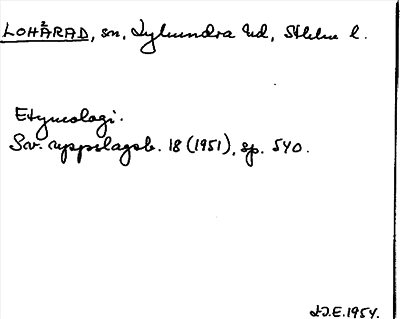 LOHÄRAD, sn, Lyhundra hd, Sthlms l.
Etymologi.
Sv. uppslagsb. 18 (1951), sp. 540.
J.I.E. 1954.